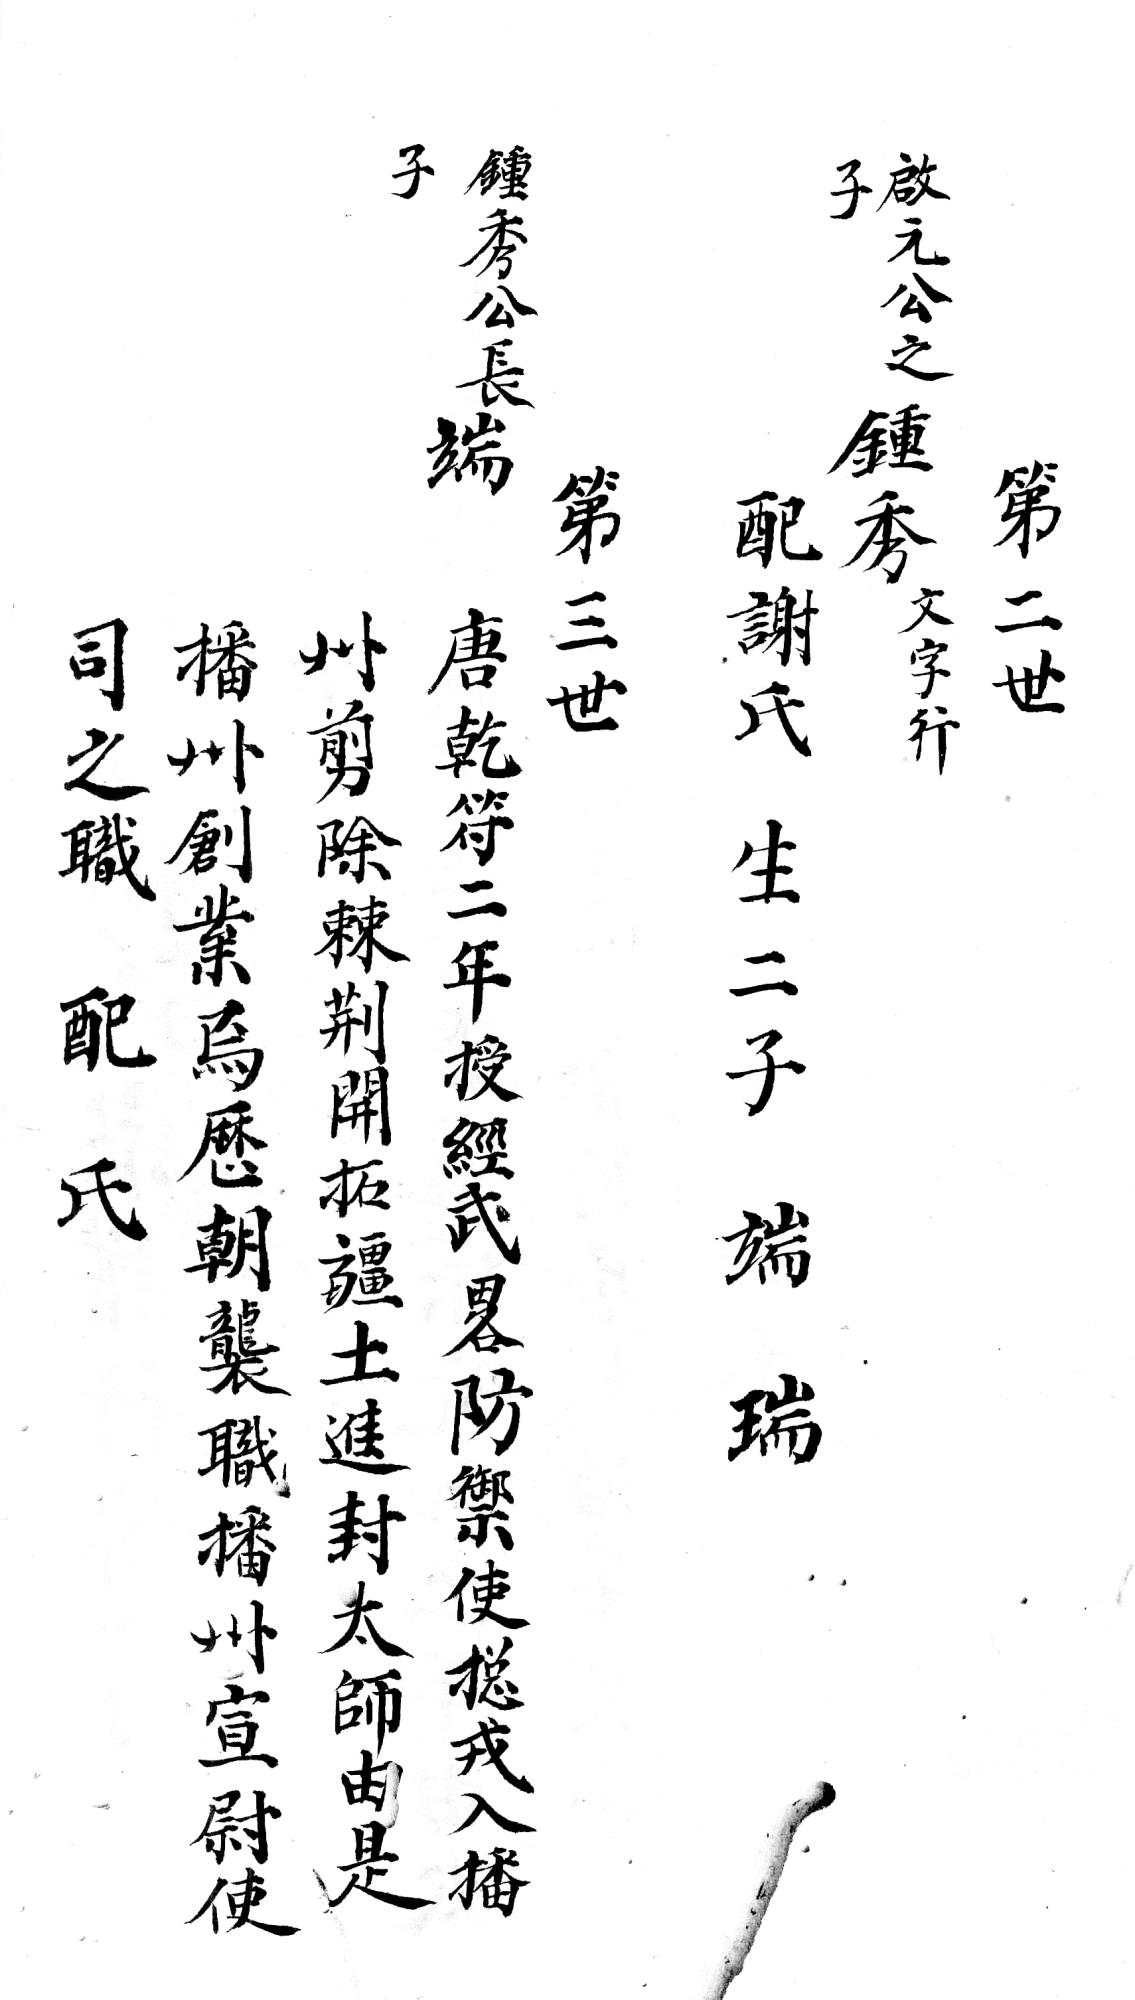 第二世
啟元公之
子
鍾秀
文字行
配謝氏 生二子 端 瑞
第三世
鍾秀公長
子
端
唐乾符二年授經武畧防禦使捴戎入播
州剪除棘荆開拓疆土進封太師由是
播州創業焉歷朝襲職播州宣尉使
司之職 配 氏